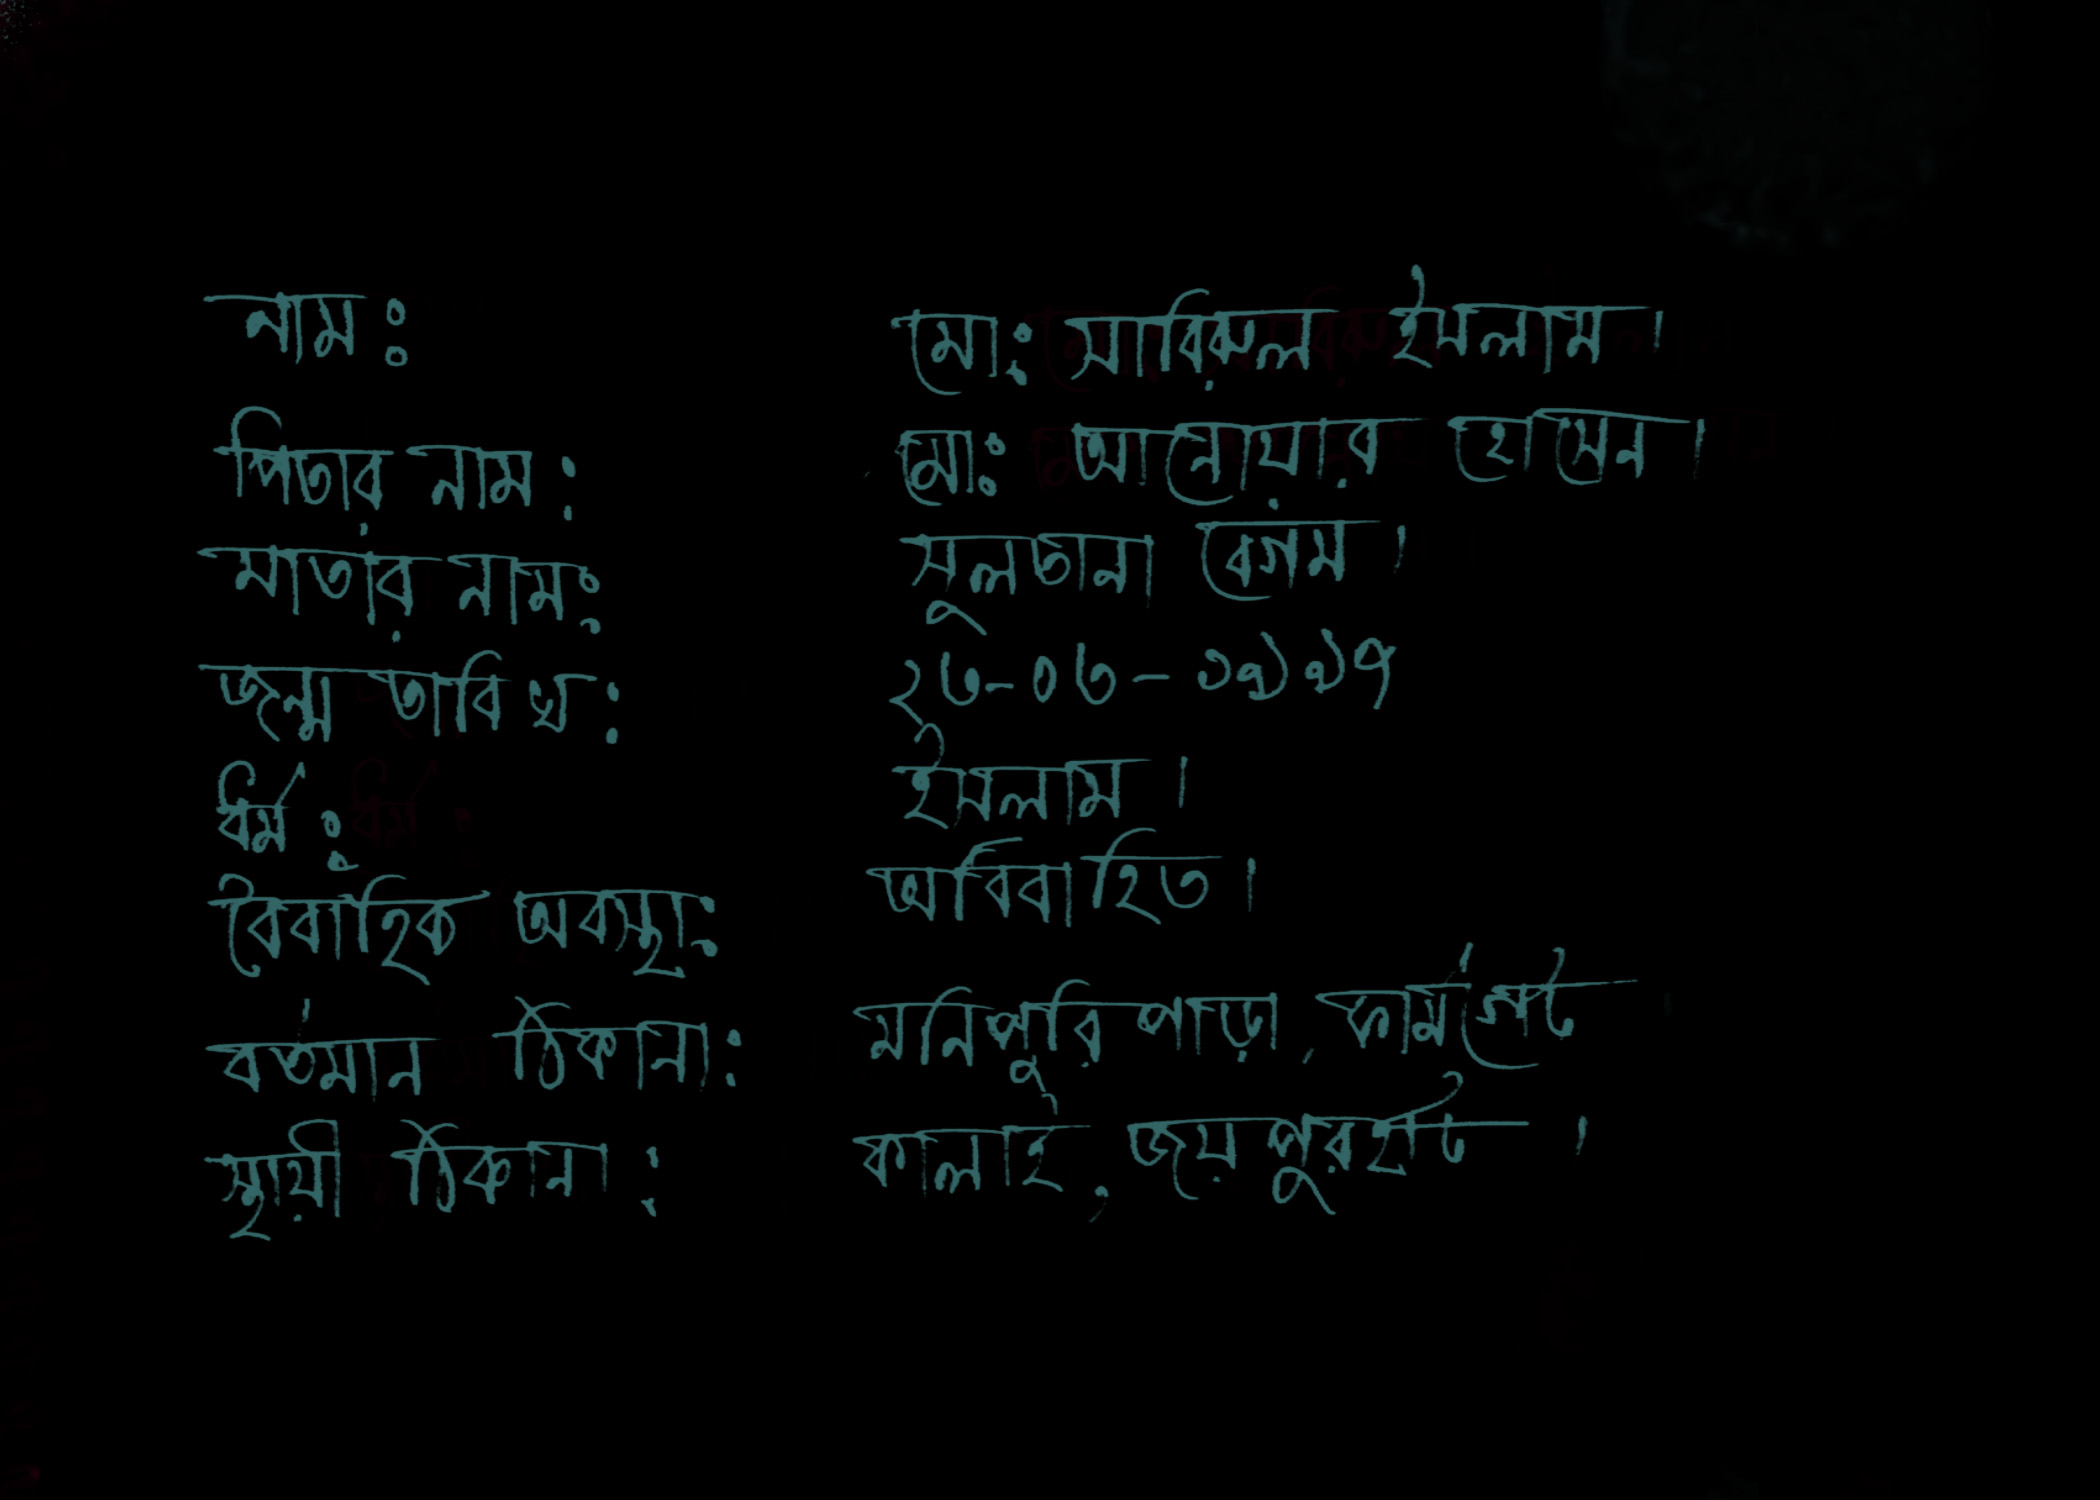 নামঃ মোঃ সারিকুল ইসলাম।
পিতার নাম: মোঃ আনোয়ার হোসেন।
মাতার নামঃ সুলতানা বেগম।
জন্ম তারিখ: ২৩-০৩-১৯৯৭
ধর্মঃ ইসলাম।
বৈবাহিক অবস্থাঃ অবিবাহিত।
বর্তমান ঠিকানা: মনিপুরি পাড়া, ফার্মগেট
স্থায়ী ঠিকানা: কালাই, জয়পুরহাট।